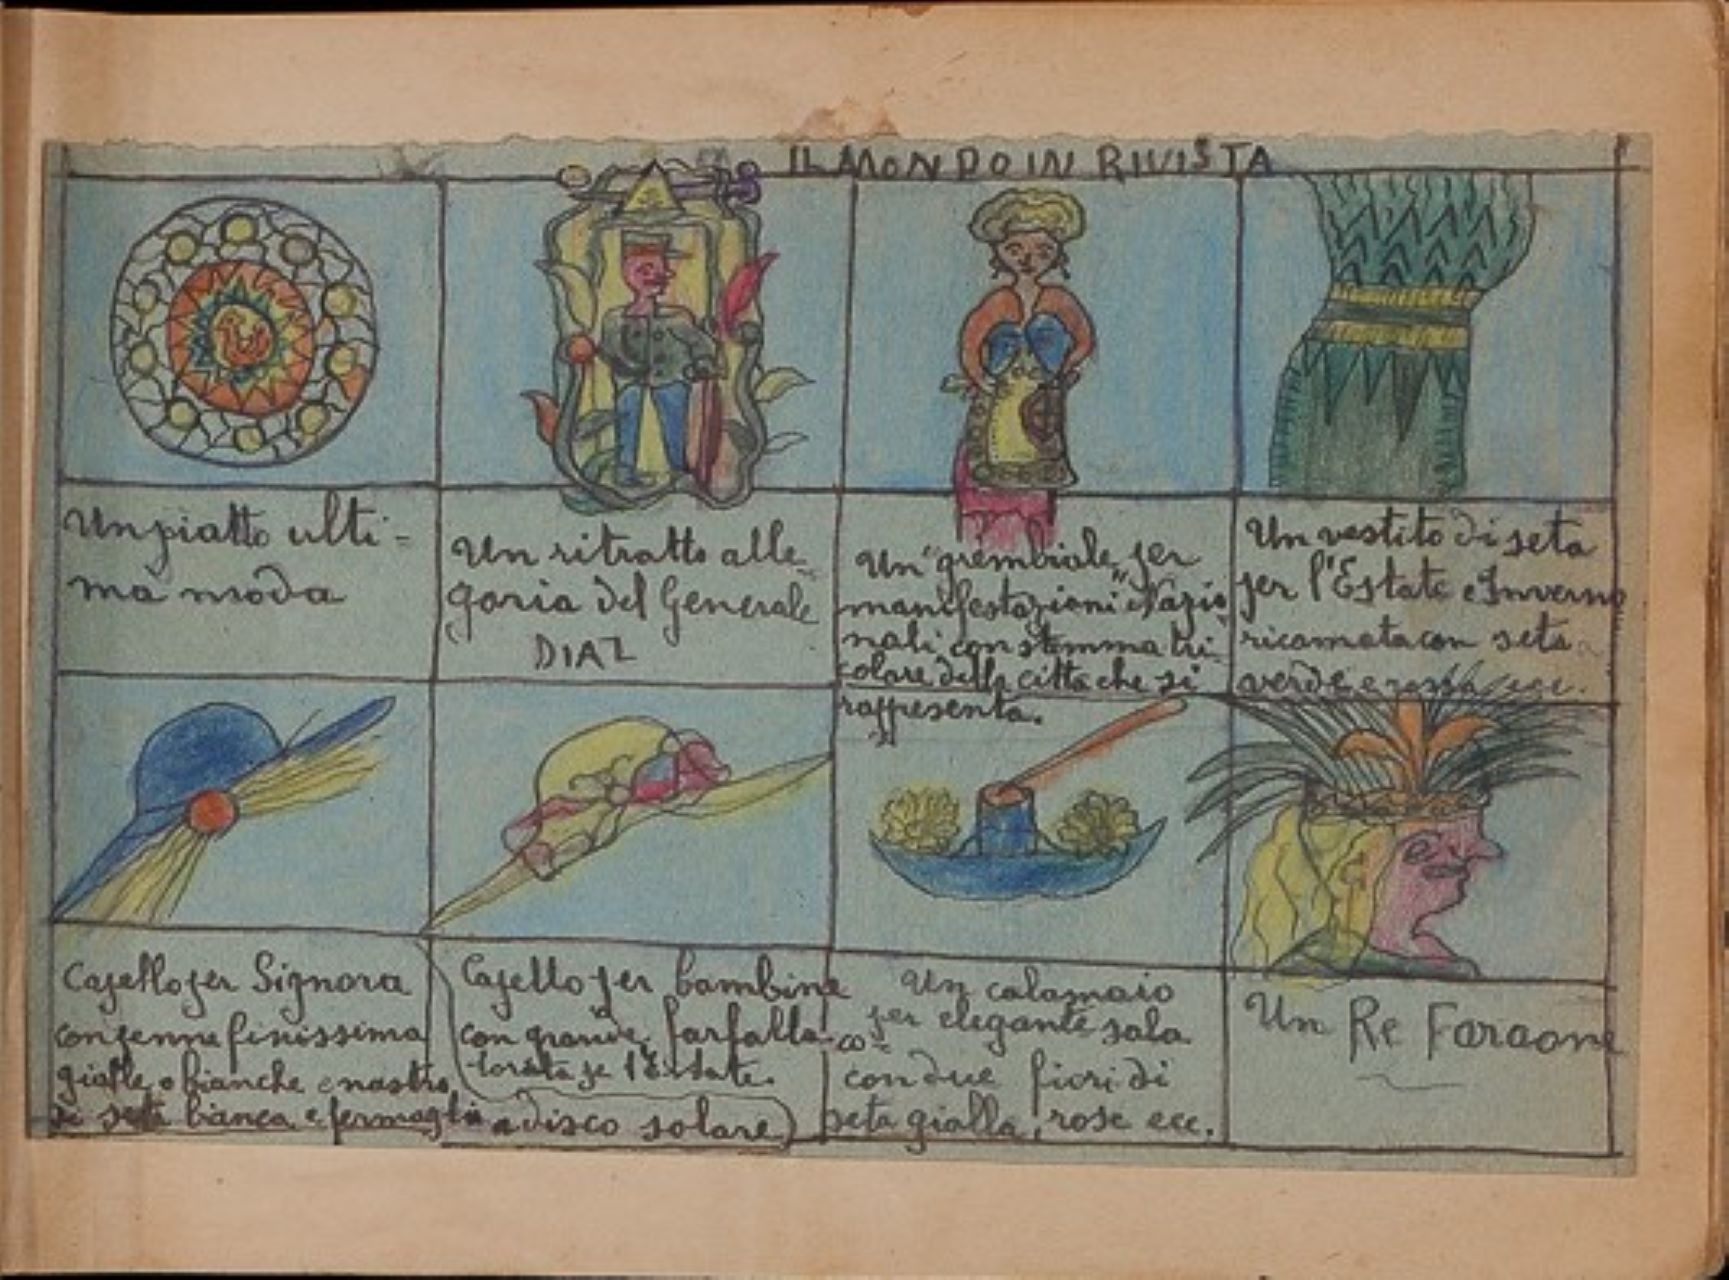 IL MONDO IN RIVISTA
Un piatto ulti-
ma moda
Un ritratto alle-
goria del Generale
DIAZ
Un "grembiale" per
manifestazioni Nazio
nali con stemma tri-
colore della citta che si
rappresenta.
Un vestito di seta
per l'Estate e Inverno
ricamata con seta
verde e rossa ecc.
Capello per Signora
con penne finissima
gialle o bianche e nastro
di seta bianca e fermaglio
a disco solare
Capello per bambina
con grande farfalla co-
lorata pe l'Estate.
Un calamaio
per elegante sala
con due fiori di
seta gialla, rose ecc.
Un Re Faraone